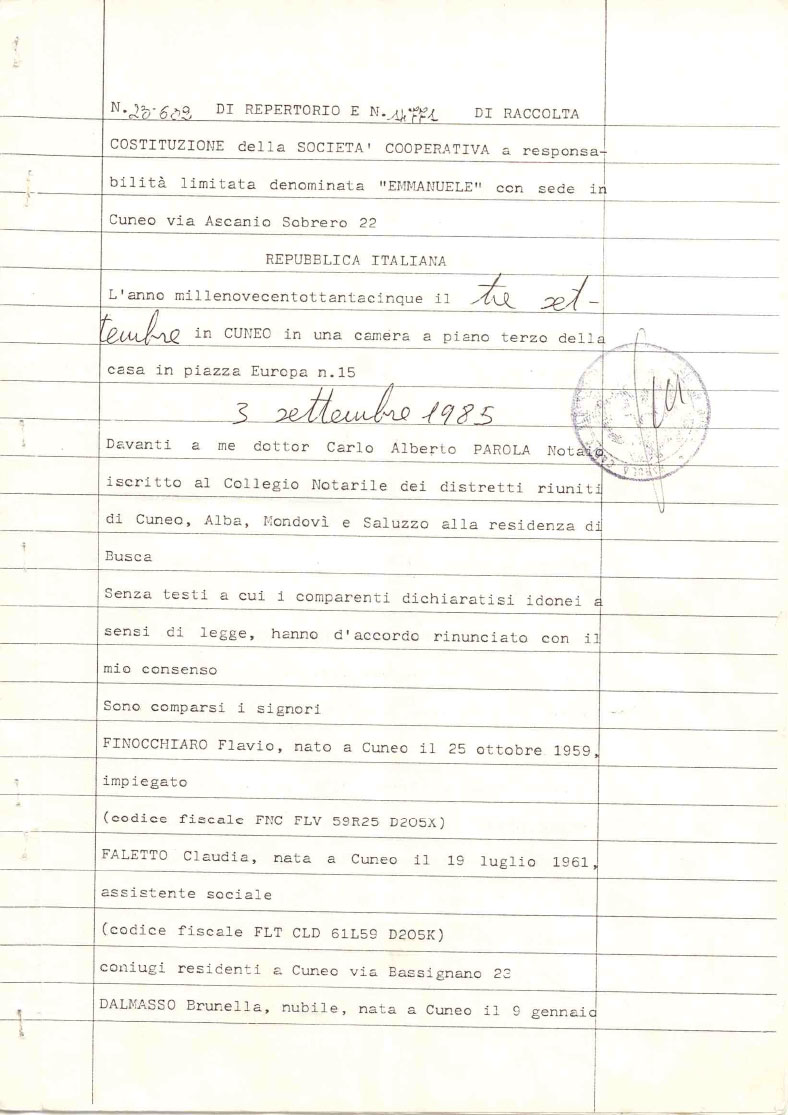 N. 20.602 DI REPERTORIO E N. 4771 DI RACCOLTA
COSTITUZIONE della SOCIETA' COOPERATIVA a responsa-
bilità limitata denominata "EMMANUELE" con sede in
Cuneo via Ascanio Sobrero 22
REPUBBLICA ITALIANA
L'anno millenovecentottantacinque il tre set-
tembre in CUNEO in una camera a piano terzo della
casa in piazza Europa n.15
3 settembre 1985
Davanti a me dottor Carlo Alberto PAROLA Notaio
iscritto al Collegio Notarile dei distretti riuniti
di Cuneo, Alba, Mondovì e Saluzzo alla residenza di
Busca
Senza testi a cui i comparenti dichiaratisi idonei a
sensi di legge, hanno d'accordo rinunciato con il
mio consenso
Sono comparsi i signori
FINOCCHIARO Flavio, nato a Cuneo il 25 ottobre 1959,
impiegato
(codice fiscale FNC FLV 59R25 D205X)
FALETTO Claudia, nata a Cuneo il 19 luglio 1961,
assistente sociale
(codice fiscale FLT CLD 61L59 D205K)
coniugi residenti a Cuneo via Bassignano 23
DALMASSO Brunella, nubile, nata a Cuneo il 9 gennaio